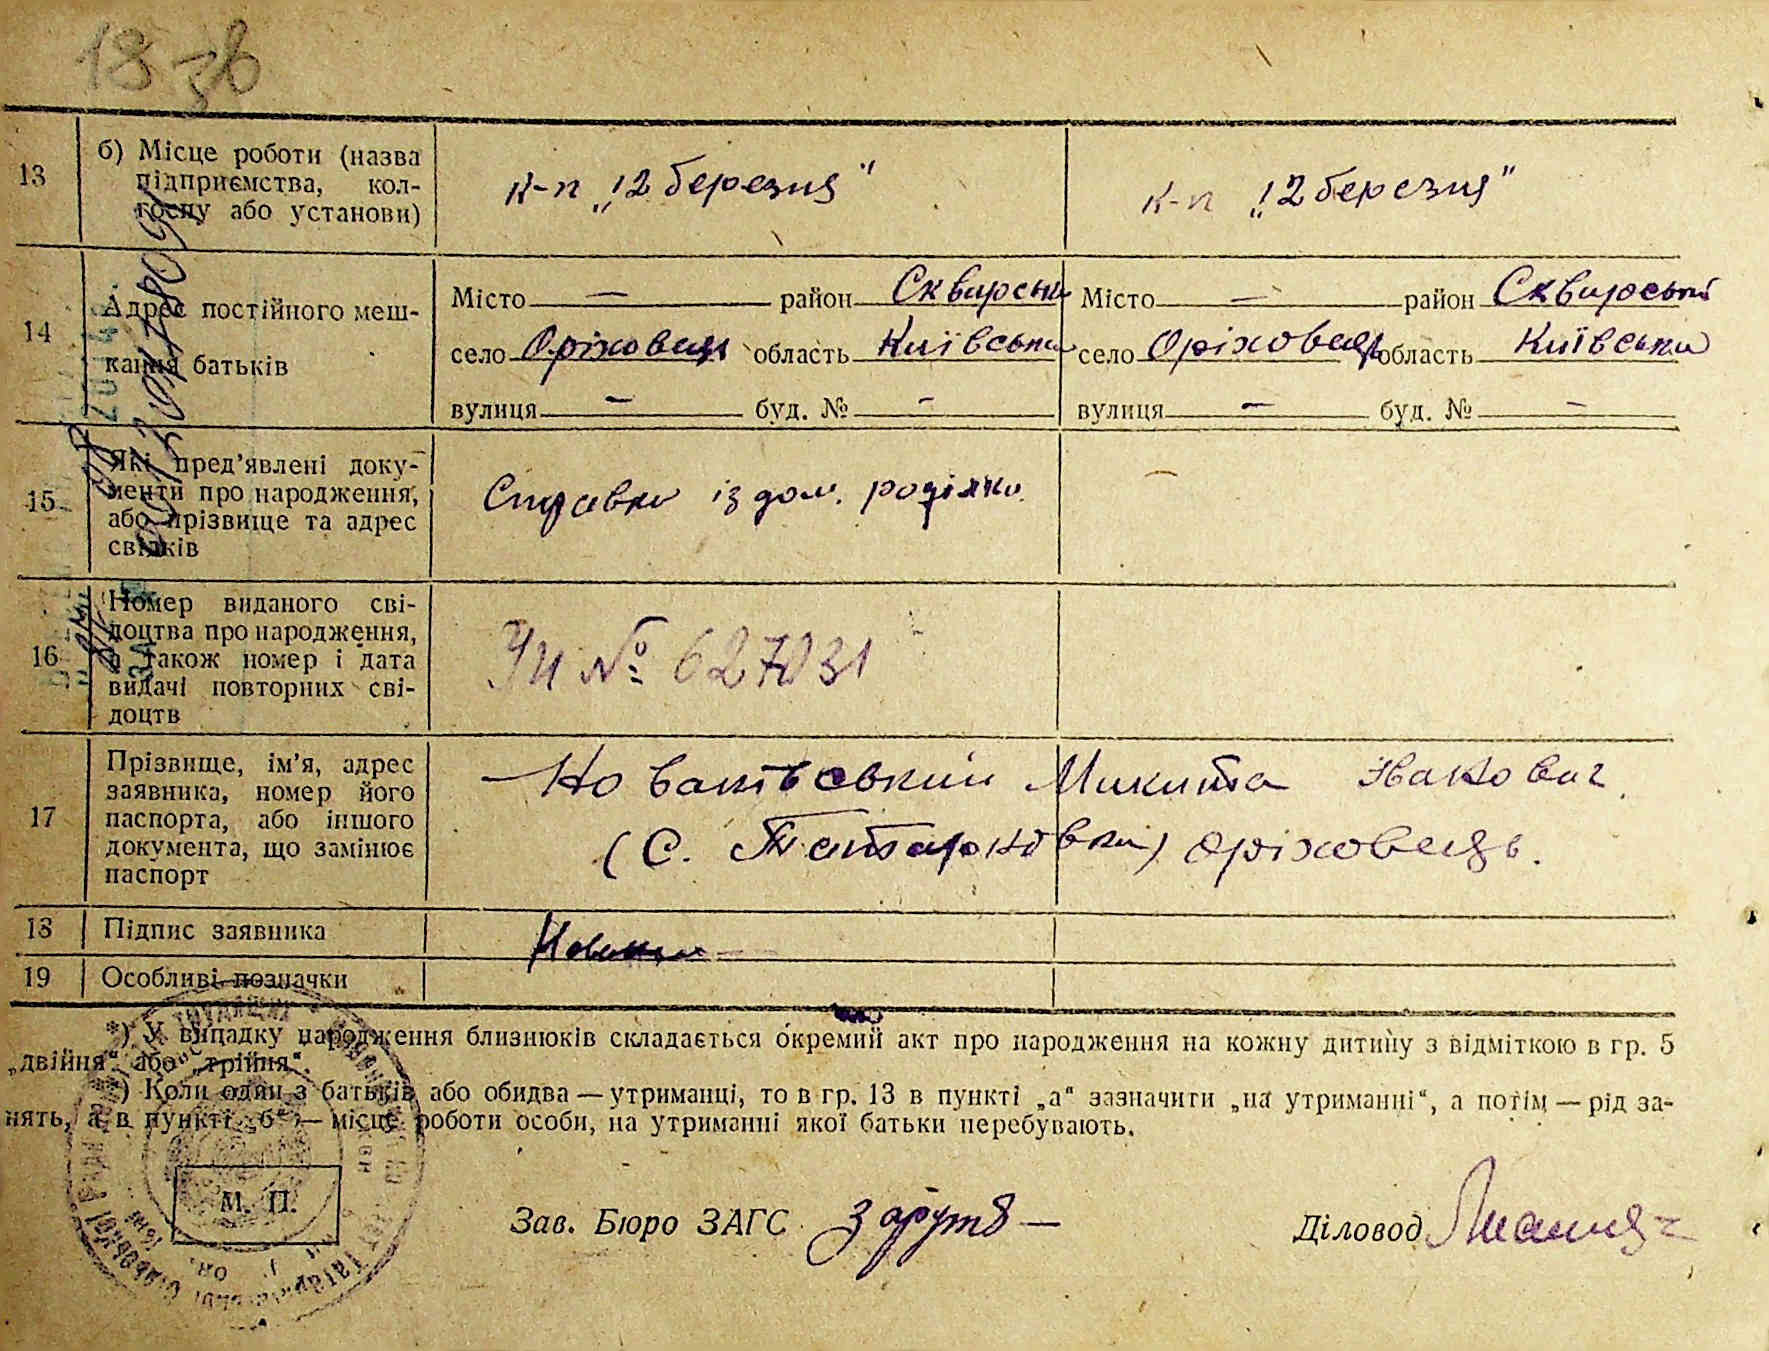 13 зв
13 б) Місце роботи (назва
підприємства, кол-
госпу або установи)
к-п „12 березня"
к-п „12 березня"
14 Адрес постійного меш-
кання батьків
Місто — район Сквирськ
село Оріховець область Київська
вулиця — буд. № —
Місто — район Сквирський
село Оріховець область Київська
вулиця — буд. № —
15 Які пред'явлені доку-
менти про народження,
або прізвище та адрес
свідків
Справка із дом.
—
16 Номер виданого сві-
доцтва про народження,
а також номер і дата
видачі повторних сві-
доцтв
№ 627031
17 Прізвище, ім'я, адрес
заявника, номер його
паспорта, або іншого
документа, що замінює
паспорт
Микита Іванович
(с. Татарновка) Оріховець.
18 Підпис заявника
19 Особливі позначки
*) У випадку народження близнюків складається окремий акт про народження на кожну дитину з відміткою в гр. 5
„двійня" або „трійня".
*) Коли один з батьків або обидва — утриманці, то в гр. 13 в пункті „а" зазначити „на утриманні", а потім — рід за-
нять, а в пункті „б" — місце роботи особи, на утриманні якої батьки перебувають.
М. П.
Зав. Бюро ЗАГС
Діловод